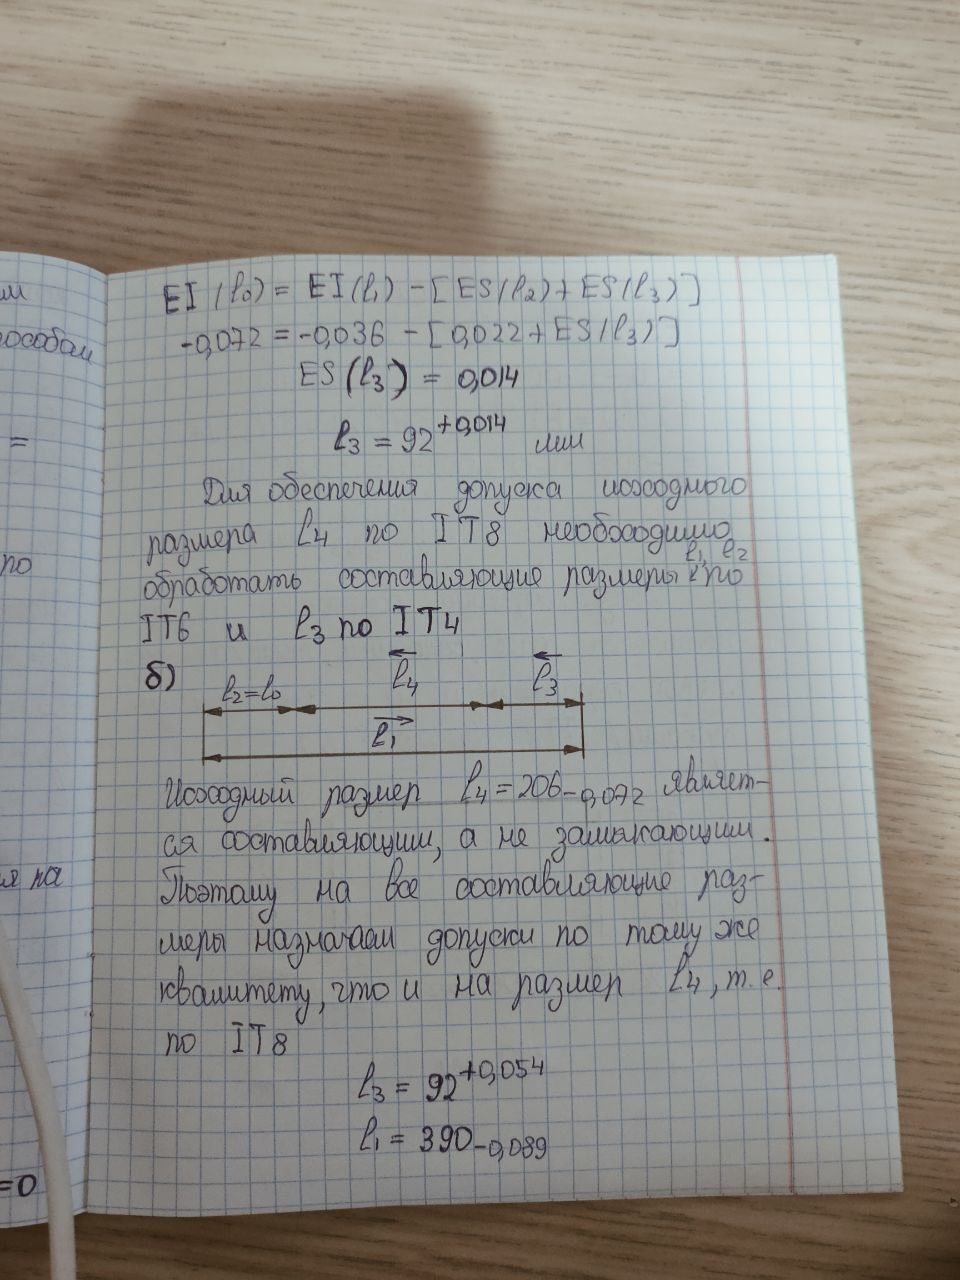 им
особом
=
по
ия на
=0
EI (l₀) = EI(l₁) - [ES(l₂) + ES(l₃)]
-0,072 = -0,036 - [0,022 + ES(l₃)]
ES(l₃) = 0,014
l₃ = 92⁺⁰'⁰¹⁴ мм
Для обеспечения допуска исходного
размера l₄ по IT8 необходимо
l₁, l₂
обработать составляющие размеры по
IT6 и l₃ по IT4
б)
l₂=l₀ l₄ l₃
l₁
Исходный размер l₄ = 206₋₀,₀₇₂ являет-
ся составляющим, а не замыкающим.
Поэтому на все составляющие раз-
меры назначаем допуски по тому же
квалитету, что и на размер l₄, т.е.
по IT8
l₃ = 92⁺⁰'⁰⁵⁴
l₁ = 390₋₀,₀₈₉